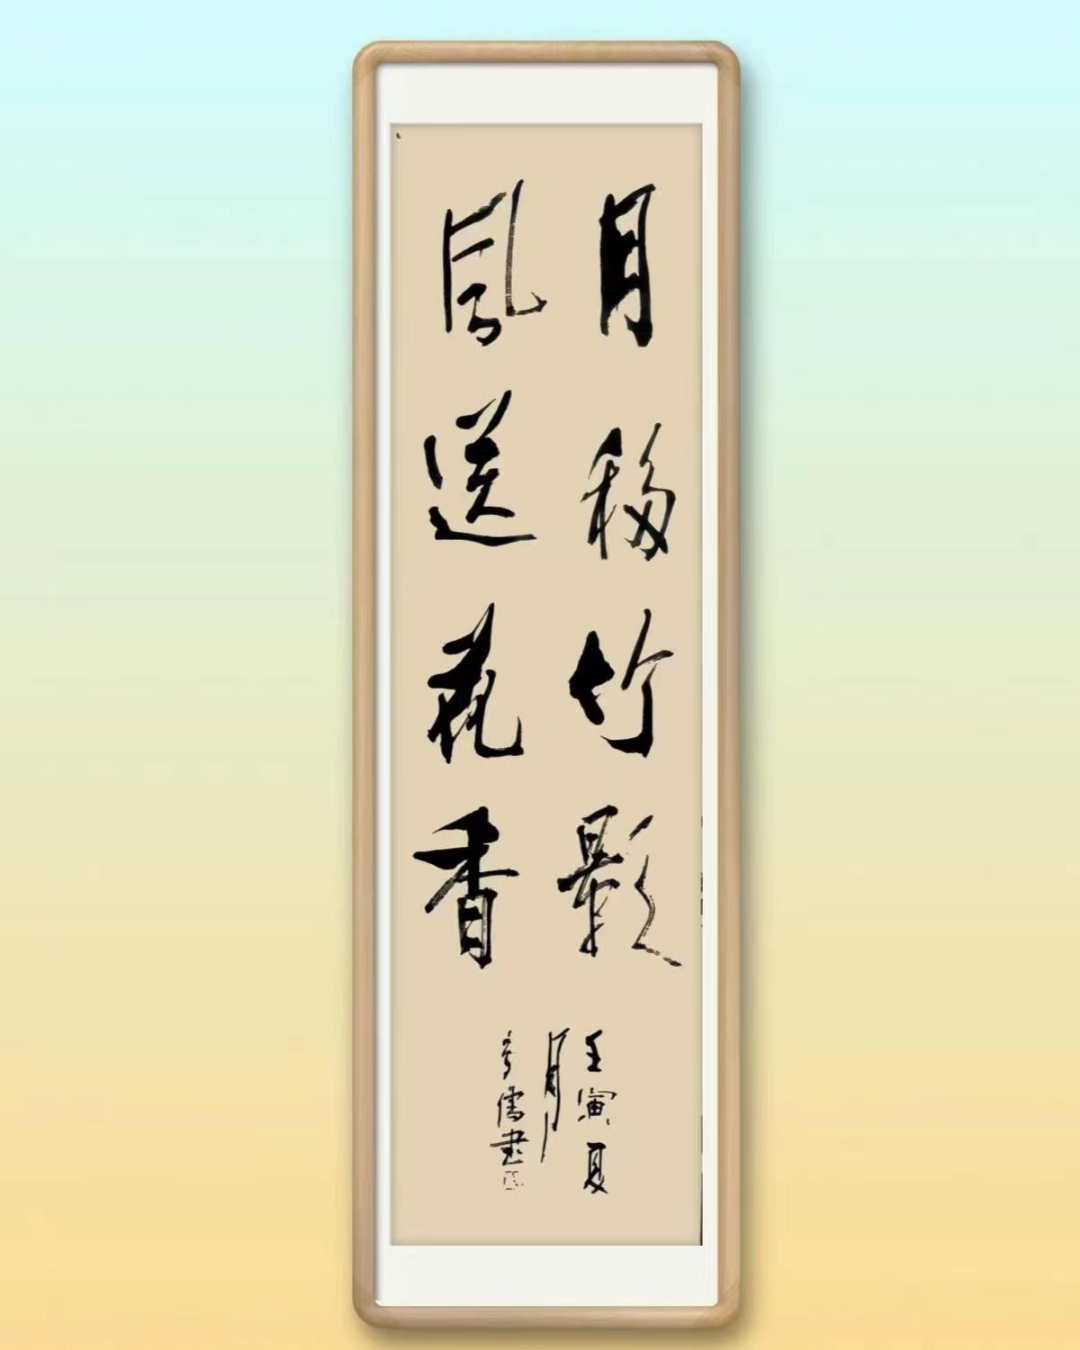 月移竹影
風送花香
壬寅夏
月
儒書